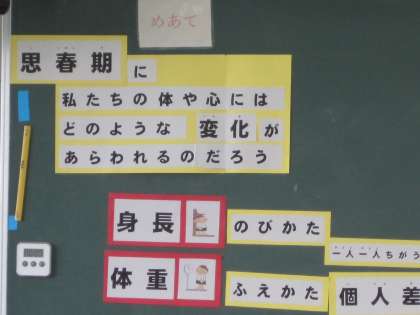 めあて
思春期に
私たちの体や心には
どのような変化が
あらわれるのだろう
身長 のびかた
一人一人ちがう
体重 ふえかた
個人差